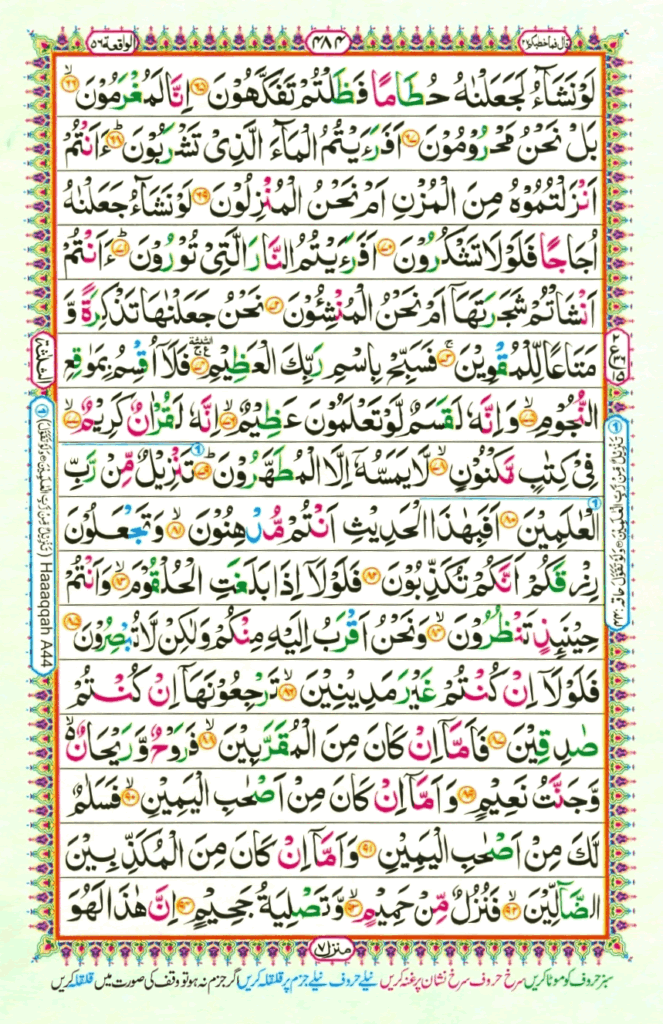 قال فما خطبکم ۲۷
۴۸۴
الواقعة ۵۶
لَوْ نَشَآءُ لَجَعَلْنٰهُ حُطَامًا فَظَلْتُمْ تَفَكَّهُوْنَ ﴿۶۵﴾ اِنَّا لَمُغْرَمُوْنَ ﴿۶۶﴾
بَلْ نَحْنُ مَحْرُوْمُوْنَ ﴿۶۷﴾ اَفَرَءَيْتُمُ الْمَآءَ الَّذِيْ تَشْرَبُوْنَ ﴿۶۸﴾ ءَاَنْتُمْ
اَنْزَلْتُمُوْهُ مِنَ الْمُزْنِ اَمْ نَحْنُ الْمُنْزِلُوْنَ ﴿۶۹﴾ لَوْ نَشَآءُ جَعَلْنٰهُ
اُجَاجًا فَلَوْلَا تَشْكُرُوْنَ ﴿۷۰﴾ اَفَرَءَيْتُمُ النَّارَ الَّتِيْ تُوْرُوْنَ ﴿۷۱﴾ ءَاَنْتُمْ
اَنْشَاْتُمْ شَجَرَتَهَآ اَمْ نَحْنُ الْمُنْشِـُٔوْنَ ﴿۷۲﴾ نَحْنُ جَعَلْنٰهَا تَذْكِرَةً وَّ
مَتَاعًا لِّلْمُقْوِيْنَ ﴿۷۳﴾ فَسَبِّحْ بِاسْمِ رَبِّكَ الْعَظِيْمِ ﴿۷۴﴾ فَلَآ اُقْسِمُ بِمَوٰقِعِ
النُّجُوْمِ ﴿۷۵﴾ وَاِنَّهٗ لَقَسَمٌ لَّوْ تَعْلَمُوْنَ عَظِيْمٌ ﴿۷۶﴾ اِنَّهٗ لَقُرْاٰنٌ كَرِيْمٌ ﴿۷۷﴾
فِيْ كِتٰبٍ مَّكْنُوْنٍ ﴿۷۸﴾ لَّا يَمَسُّهٗٓ اِلَّا الْمُطَهَّرُوْنَ ﴿۷۹﴾ تَنْزِيْلٌ مِّنْ رَّبِّ
الْعٰلَمِيْنَ ﴿۸۰﴾ اَفَبِهٰذَا الْحَدِيْثِ اَنْتُمْ مُّدْهِنُوْنَ ﴿۸۱﴾ وَتَجْعَلُوْنَ
رِزْقَكُمْ اَنَّكُمْ تُكَذِّبُوْنَ ﴿۸۲﴾ فَلَوْلَآ اِذَا بَلَغَتِ الْحُلْقُوْمَ ﴿۸۳﴾ وَاَنْتُمْ
حِيْنَئِذٍ تَنْظُرُوْنَ ﴿۸۴﴾ وَنَحْنُ اَقْرَبُ اِلَيْهِ مِنْكُمْ وَلٰكِنْ لَّا تُبْصِرُوْنَ ﴿۸۵﴾
فَلَوْلَآ اِنْ كُنْتُمْ غَيْرَ مَدِيْنِيْنَ ﴿۸۶﴾ تَرْجِعُوْنَهَآ اِنْ كُنْتُمْ
صٰدِقِيْنَ ﴿۸۷﴾ فَاَمَّآ اِنْ كَانَ مِنَ الْمُقَرَّبِيْنَ ﴿۸۸﴾ فَرَوْحٌ وَّرَيْحَانٌ
وَّجَنَّتُ نَعِيْمٍ ﴿۸۹﴾ وَاَمَّآ اِنْ كَانَ مِنْ اَصْحٰبِ الْيَمِيْنِ ﴿۹۰﴾ فَسَلٰمٌ
لَّكَ مِنْ اَصْحٰبِ الْيَمِيْنِ ﴿۹۱﴾ وَاَمَّآ اِنْ كَانَ مِنَ الْمُكَذِّبِيْنَ
الضَّآلِّيْنَ ﴿۹۲﴾ فَنُزُلٌ مِّنْ حَمِيْمٍ ﴿۹۳﴾ وَّتَصْلِيَةُ جَحِيْمٍ ﴿۹۴﴾ اِنَّ هٰذَا لَهُوَ
منزل ۷
الثلثة
(تَنْزِيْلٌ مِّنْ رَّبِّ الْعٰلَمِيْنَ وَلَوْ تَقَوَّلَ) Haaaqqah A44
سبز حروف کو موٹا کریں سرخ حروف سرخ نشان پر غنہ کریں نیلے حروف نیلے جزم پر قلقلہ کریں اگر جزم نہ ہو تو وقف کی صورت میں قلقلہ کریں